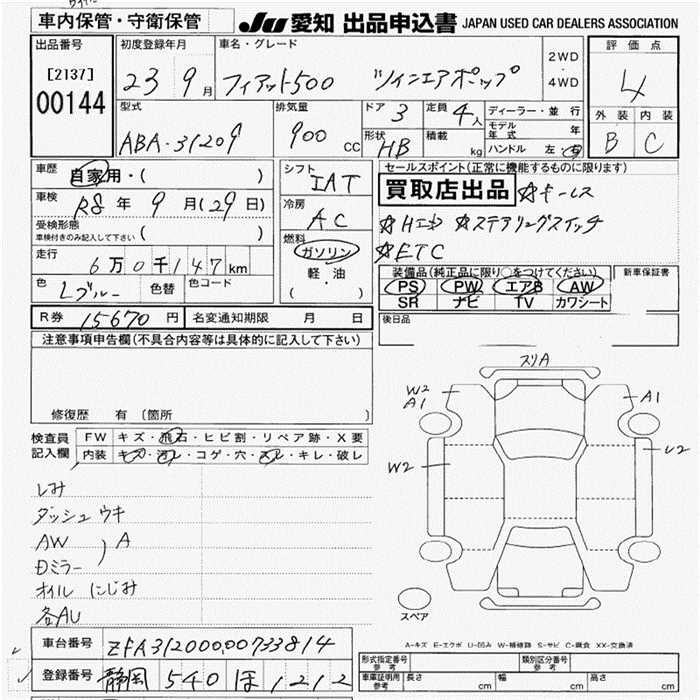 車内保管・守衛保管
JU 愛知 出品申込書 JAPAN USED CAR DEALERS ASSOCIATION
出品番号
[2137]
00144
初度登録年月
23 9月
車名・グレード
フィアット500 ツインエアポップ
2WD
4WD
評価点
4
外装 内装
B C
型式
ABA-31209
排気量
900 cc
ドア 3
形状 HB
定員 4人
積載 kg
ディーラー・並行
モデル年式 年
ハンドル 左・右
車歴 自家用・( )
車検 R8年 9月(29日)
受検形態
車検付きのみ記入して下さい ( )
走行
6万0千147km
色 Lブルー 色替 色コード
シフト
IAT
冷房
AC
燃料
ガソリン
軽・油
( )
セールスポイント(正常に機能するものに限ります)
買取店出品 ☆キーレス
☆Hエンド ☆ステアリングスイッチ
☆ETC
装備品(純正品に限り○をつけてください) 新車保証書
PS PW エアB AW
SR ナビ TV カワシート
後日品
R券 15670円 名変通知期限 月 日
注意事項申告欄(不具合内容等は具体的に記入して下さい)
修復歴 有〔箇所 〕
検査員記入欄
FW キズ・飛石・ヒビ割・リペア跡・X要
内装 キズ・汚レ・コゲ・穴・スレ・キレ・破レ
しみ
ダッシュウキ
AW
Dミラー ) A
オイルにじみ
各AU
スリA
W2
A1
A1
W2
U2
スペア
A-キズ E-エクボ U-凹み W-補修跡 S-サビ C-腐食 XX-交換済
車台番号 ZFA31200000733814
登録番号 静岡 540 ほ 1212
形式指定番号 参考
類別区分番号 参考
車庫証明用 参考 長さ cm 幅 cm 高さ cm